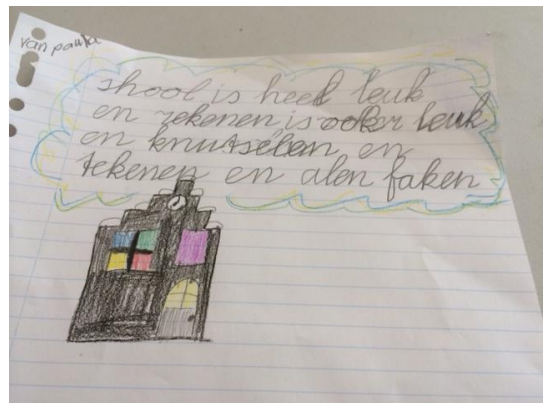 van paula
shool is heel leuk
en rekenen is ooker leuk
en knutselen en
tekenen en alen faken